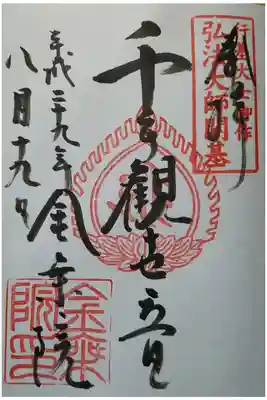 奉拝
行基大士御作
弘法大師開基
千手観世音
平成二十九年
八月十九日
金乗院
金乘
院印